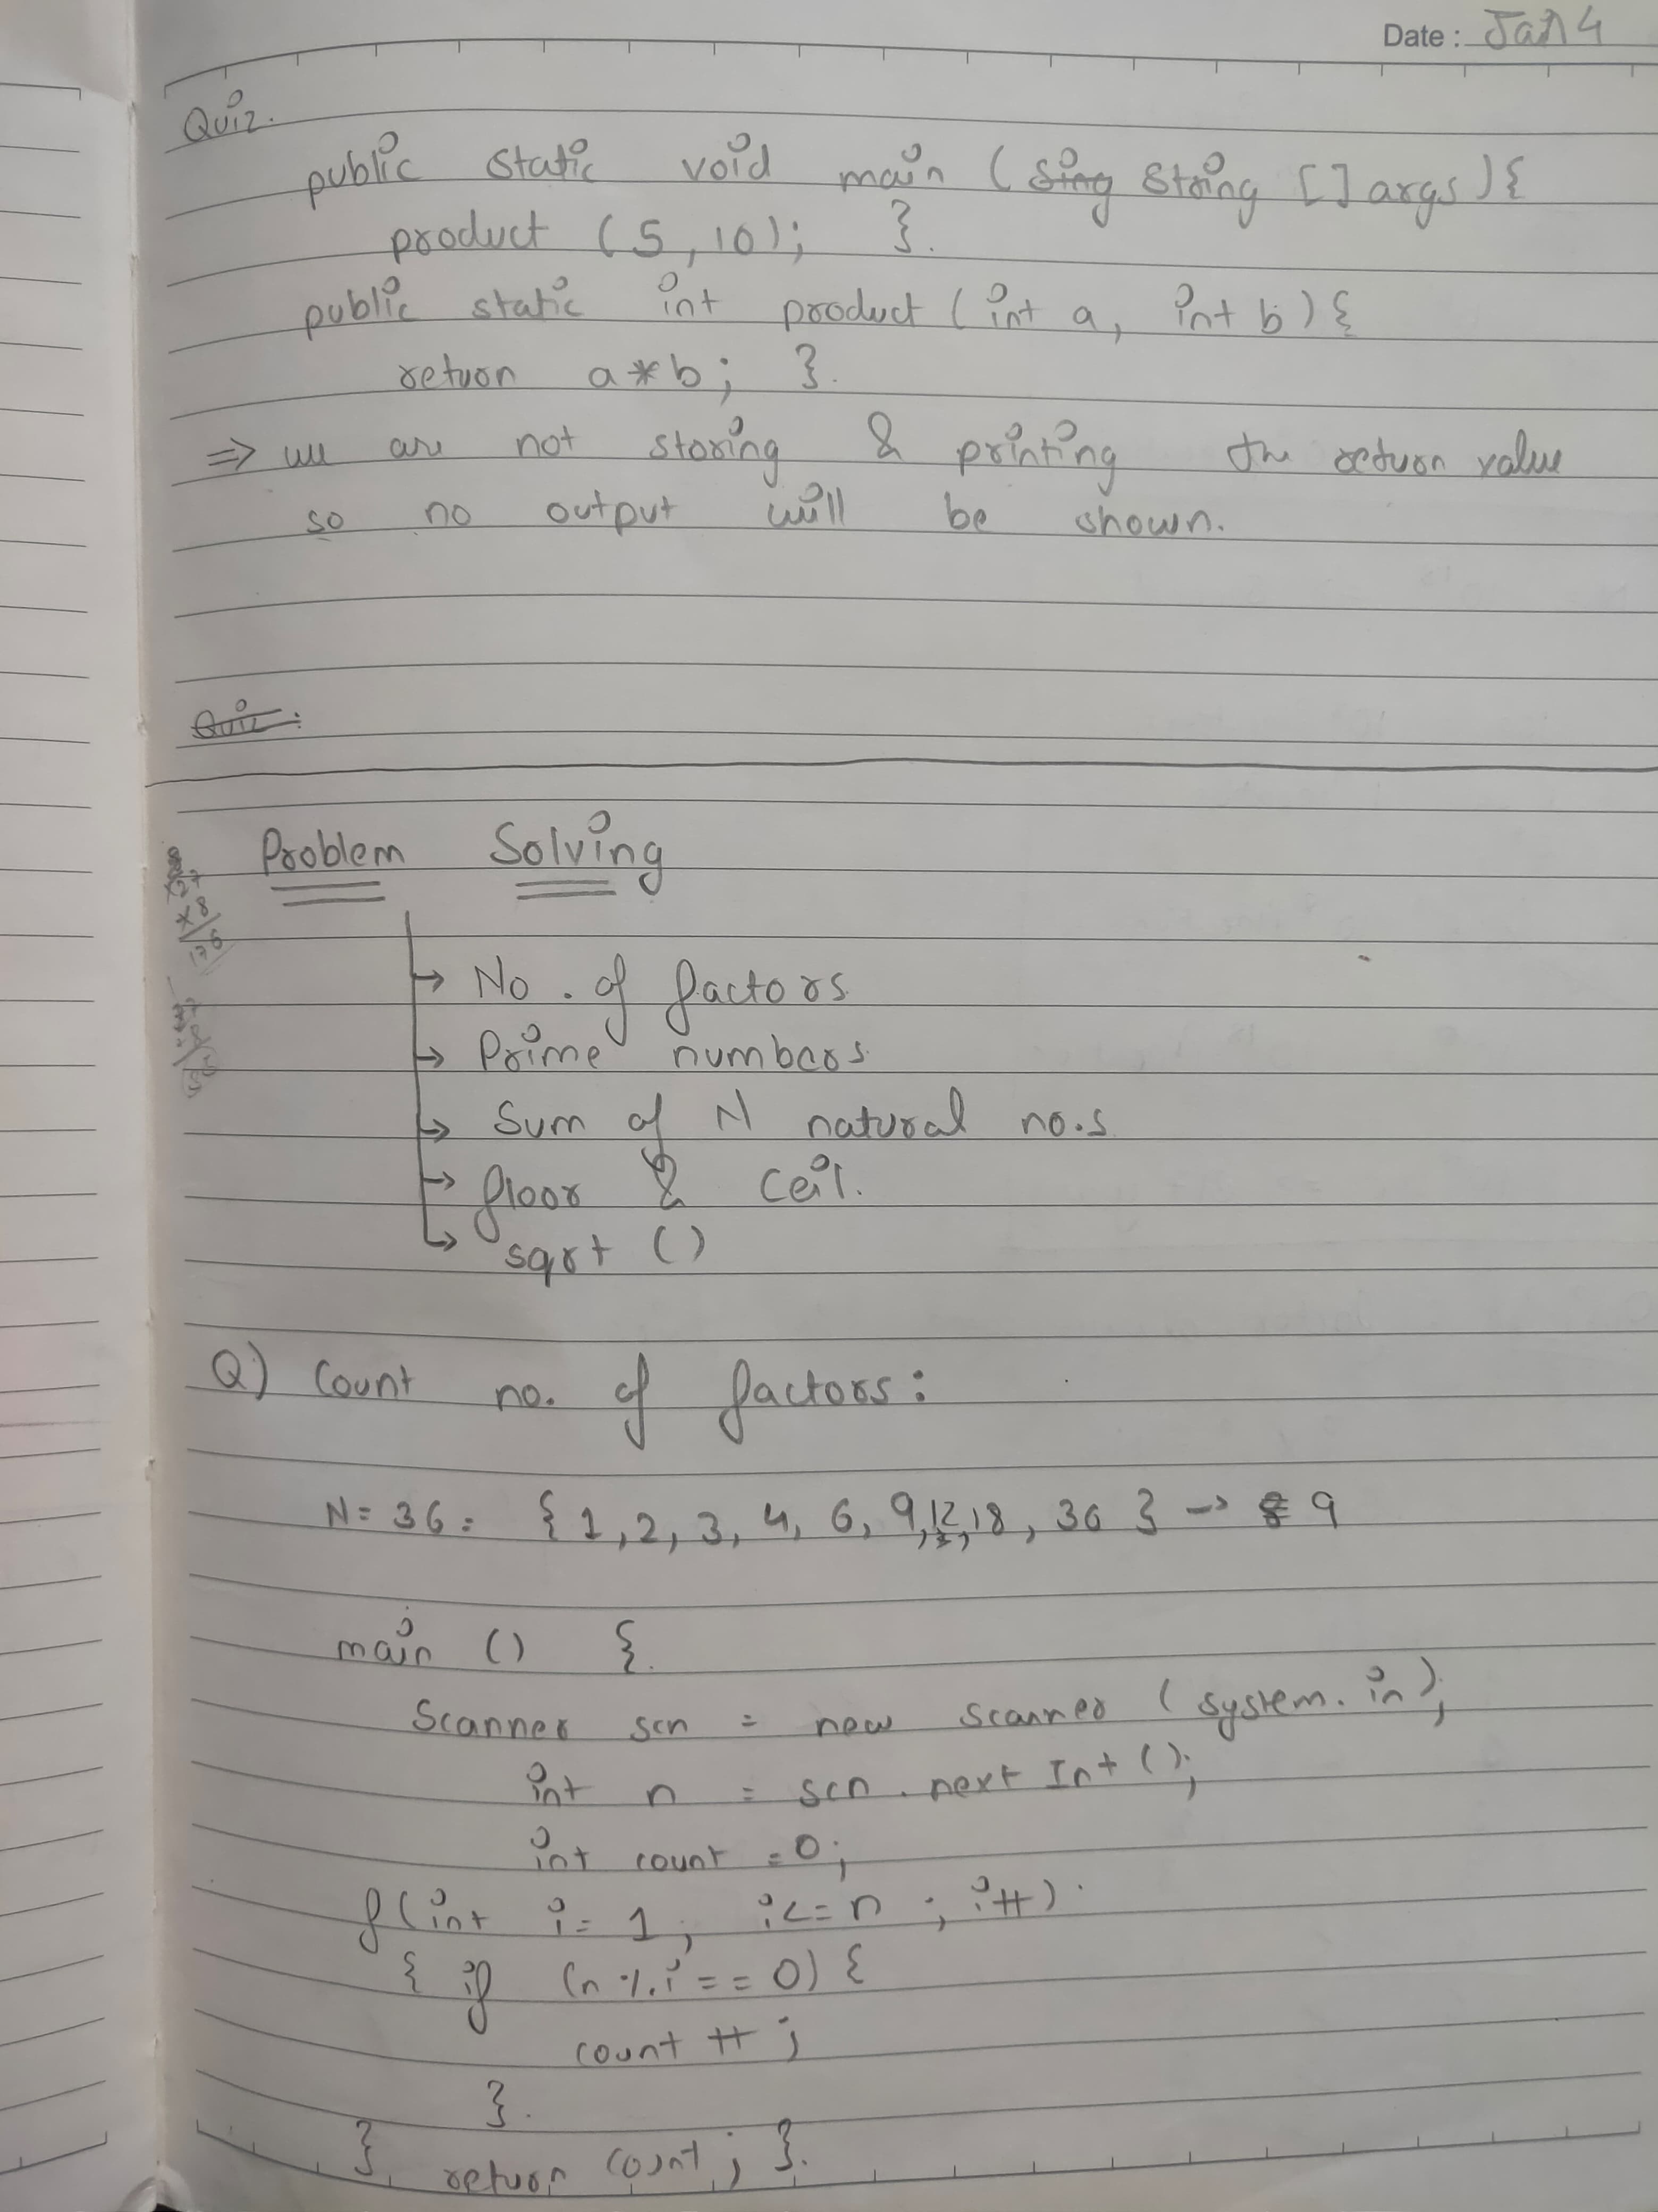 Date : Jan 4
Quiz.
public static void main ( String [] args ) {
product ( 5 , 10 ) ; }.
public static int product ( int a, int b ) {
return a * b ; }.
⇒ we are not storing & printing the return value
so no output will be shown.
Quiz :
Problem Solving
→ No . of factors
→ Prime numbers
→ Sum of N natural no.s
→ floor & ceil.
→ sqrt ()
Q) Count no. of factors :
N = 36 = { 1 , 2 , 3 , 4 , 6 , 9 , 12 , 18 , 36 } → 9
main () {.
Scanner scn = new Scanner ( system . in ) ;
int n = scn . next Int () ;
int count = 0 ;
f ( int i = 1 ; i <= n ; i ++ )
{ if ( n % i == 0 ) {
count ++ ;
}.
} return count ; }.